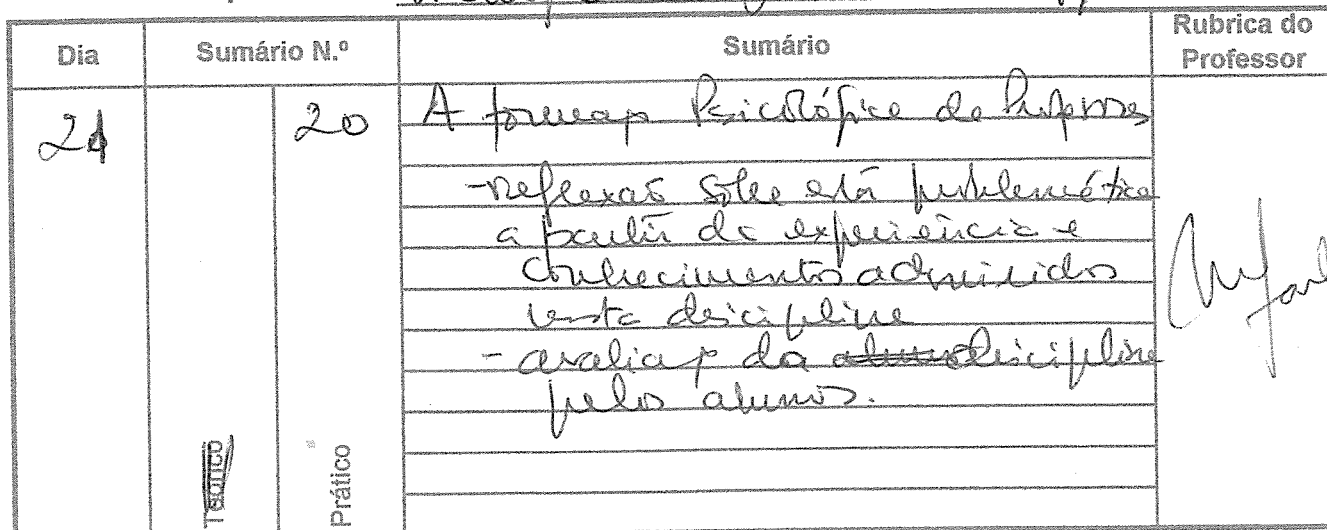 Dia Sumário N.º Sumário Rubrica do Professor
21 20 A formaç Psicológica de Professores
- reflexão sobre esta problemática
a partir da experiência e
conhecimentos adquiridos
nesta disciplina
- avaliaç da disciplina
pelos alunos.
Teórico
Prático